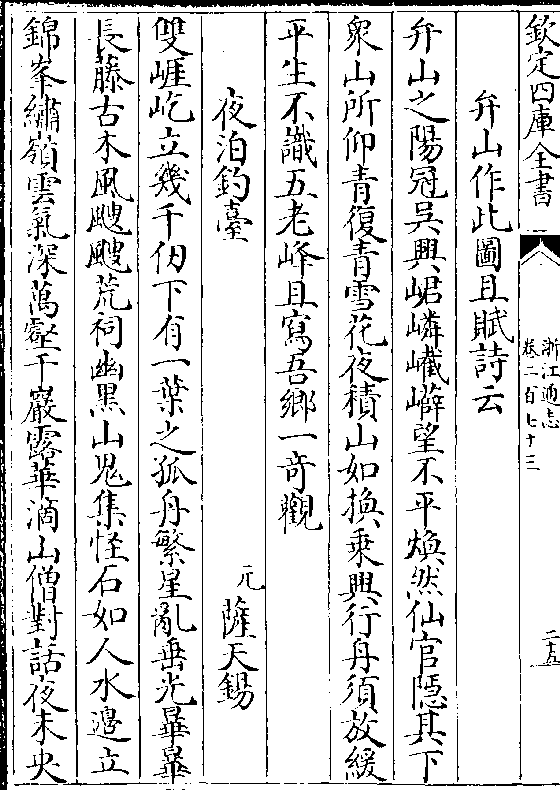 欽定四庫全書
浙江通志
卷二百七十三
二五
弁山作此圖且賦詩云
弁山之陽冠吳興岷嶙巀嶭望不平煥然仙官隠其下
衆山所仰青復青雪花夜積山如換乗興行舟須放緩
平生不識五老峰且寫吾鄉一竒觀
夜泊釣臺
元薩天錫
雙崕屹立幾千仞下有一葉之孤舟繁星亂垂光畢畢
長藤古木風颼颼荒祠幽黒山鬼集怪石如人水邉立
錦峯繡嶺雲氣深萬壑千巖露華滴山僧對話夜未央